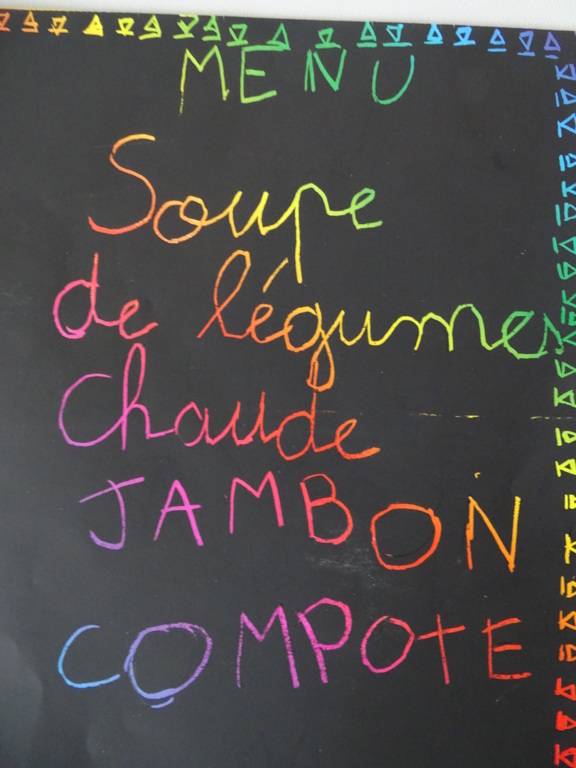 MENU
Soupe
de légumes
Chaude
JAMBON
COMPOTE